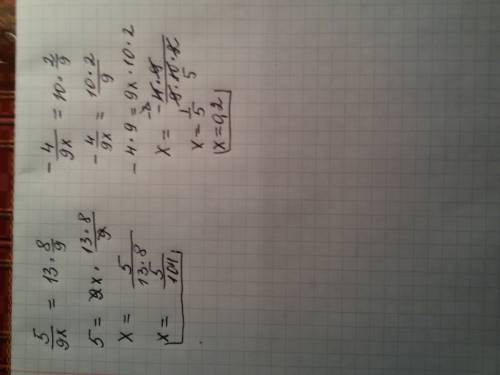 5/9x = 13 · 8/9
5 = 9x · 13·8/9
x = 5/13·8
x = 5/104
- 4/9x = 10 · 2/9
- 4/9x = 10·2/9
- 4·9 = 9x·10·2
x = -4·9/9·10·2
x = 1/5
x = 0,2